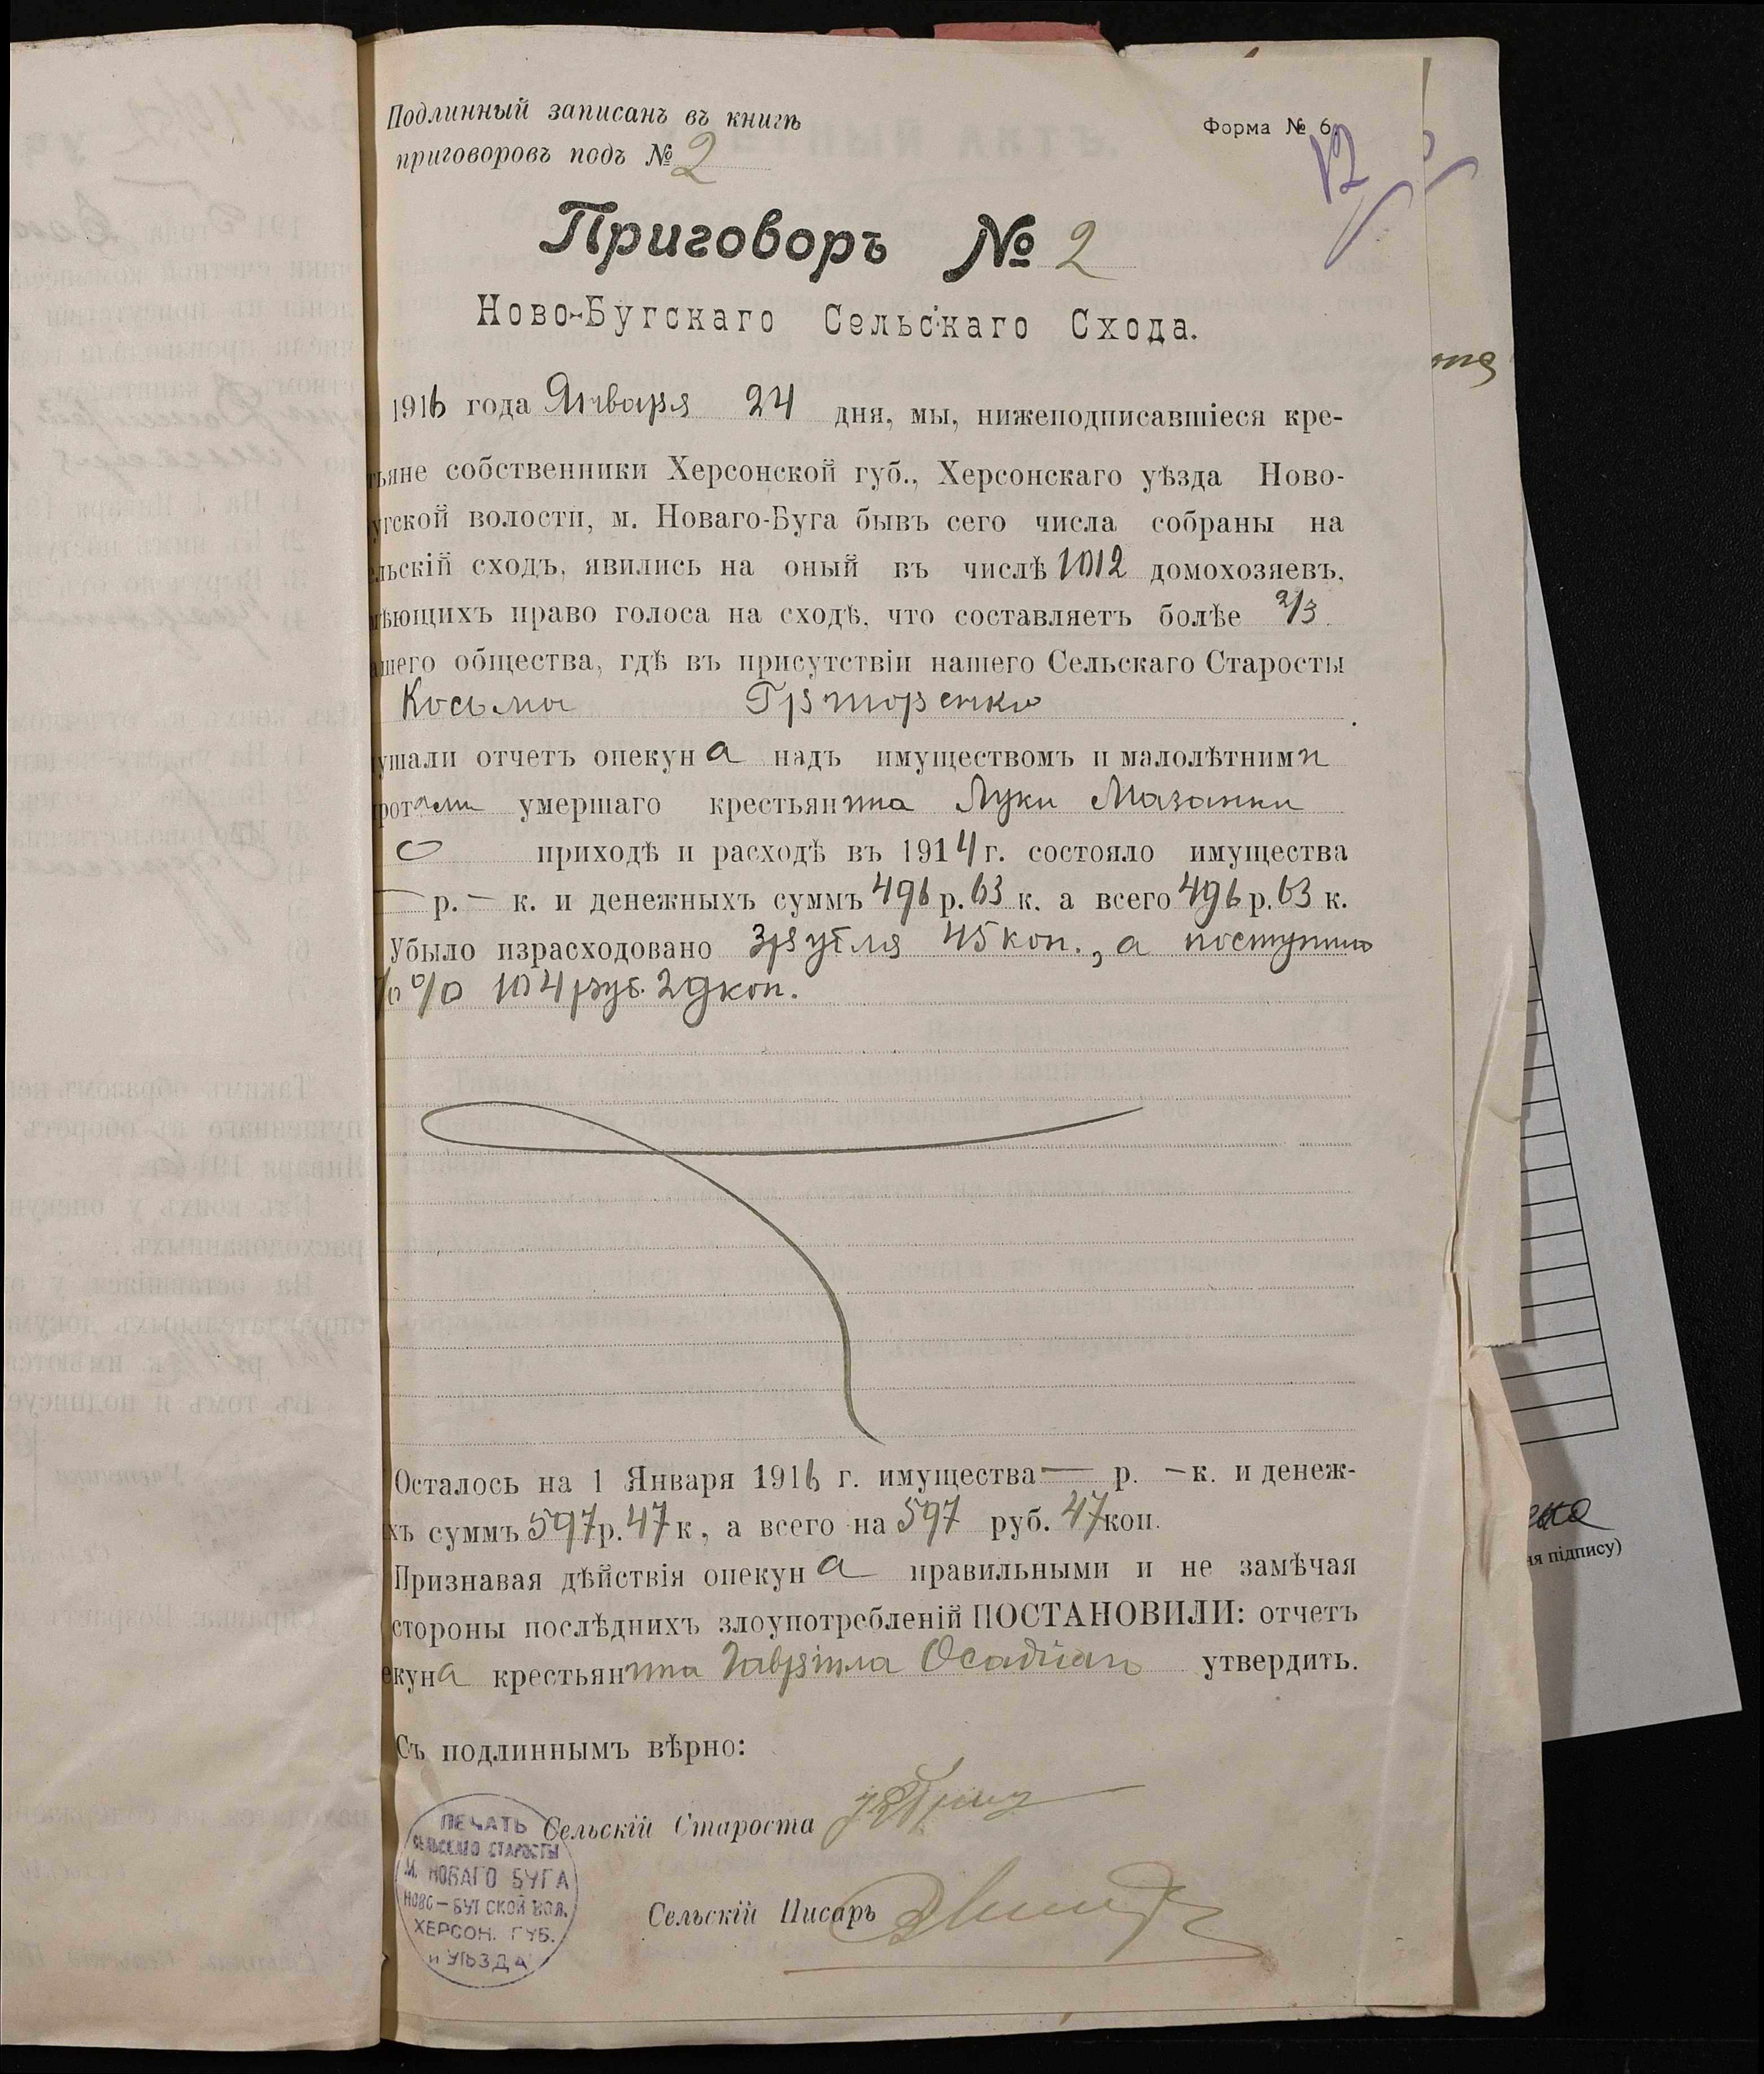 Подлинный записанъ въ книгѣ
приговоровъ подъ № 2
Форма № 6.
12
Приговоръ № 2
Ново-Бугскаго Сельскаго Схода.
1916 года Января 24 дня, мы, нижеподписавшіеся кре-
тьяне собственники Херсонской губ., Херсонскаго уѣзда Ново-
угской волости, м. Новаго-Буга бывъ сего числа собраны на
льскій сходъ, явились на оный въ числѣ 1012 домохозяевъ,
ѣющихъ право голоса на сходѣ, что составляетъ болѣе 2/3
шего общества, гдѣ въ присутствіи нашего Сельскаго Старосты
Косьма
ушали отчетъ опекуна надъ имуществомъ и малолѣтними
ротами умершаго крестьянина Луки Мазанки
о приходѣ и расходѣ въ 1914 г. состояло имущества
— р. — к. и денежныхъ суммъ 496 р. 63 к. а всего 496 р. 63 к.
Убыло израсходовано 3 рубля 45 коп., а поступило
% 104 руб. 29 коп.
Осталось на 1 Января 1916 г. имущества — р. — к. и денеж-
хъ суммъ 597 р. 47 к, а всего на 597 руб. 47 коп.
Признавая дѣйствія опекуна правильными и не замѣчая
стороны послѣднихъ злоупотребленій ПОСТАНОВИЛИ: отчетъ
екуна крестьянина Гавріила Осадчаго утвердить.
Съ подлиннымъ вѣрно:
Сельскій Староста
Сельскій Писарь
ПЕЧАТЬ
СЕЛЬСКАГО СТАРОСТЫ
М. НОВАГО БУГА
НОВО-БУГСКОЙ ВОЛ.
ХЕРСОН. ГУБ.
и УѢЗДА
ня підпису)